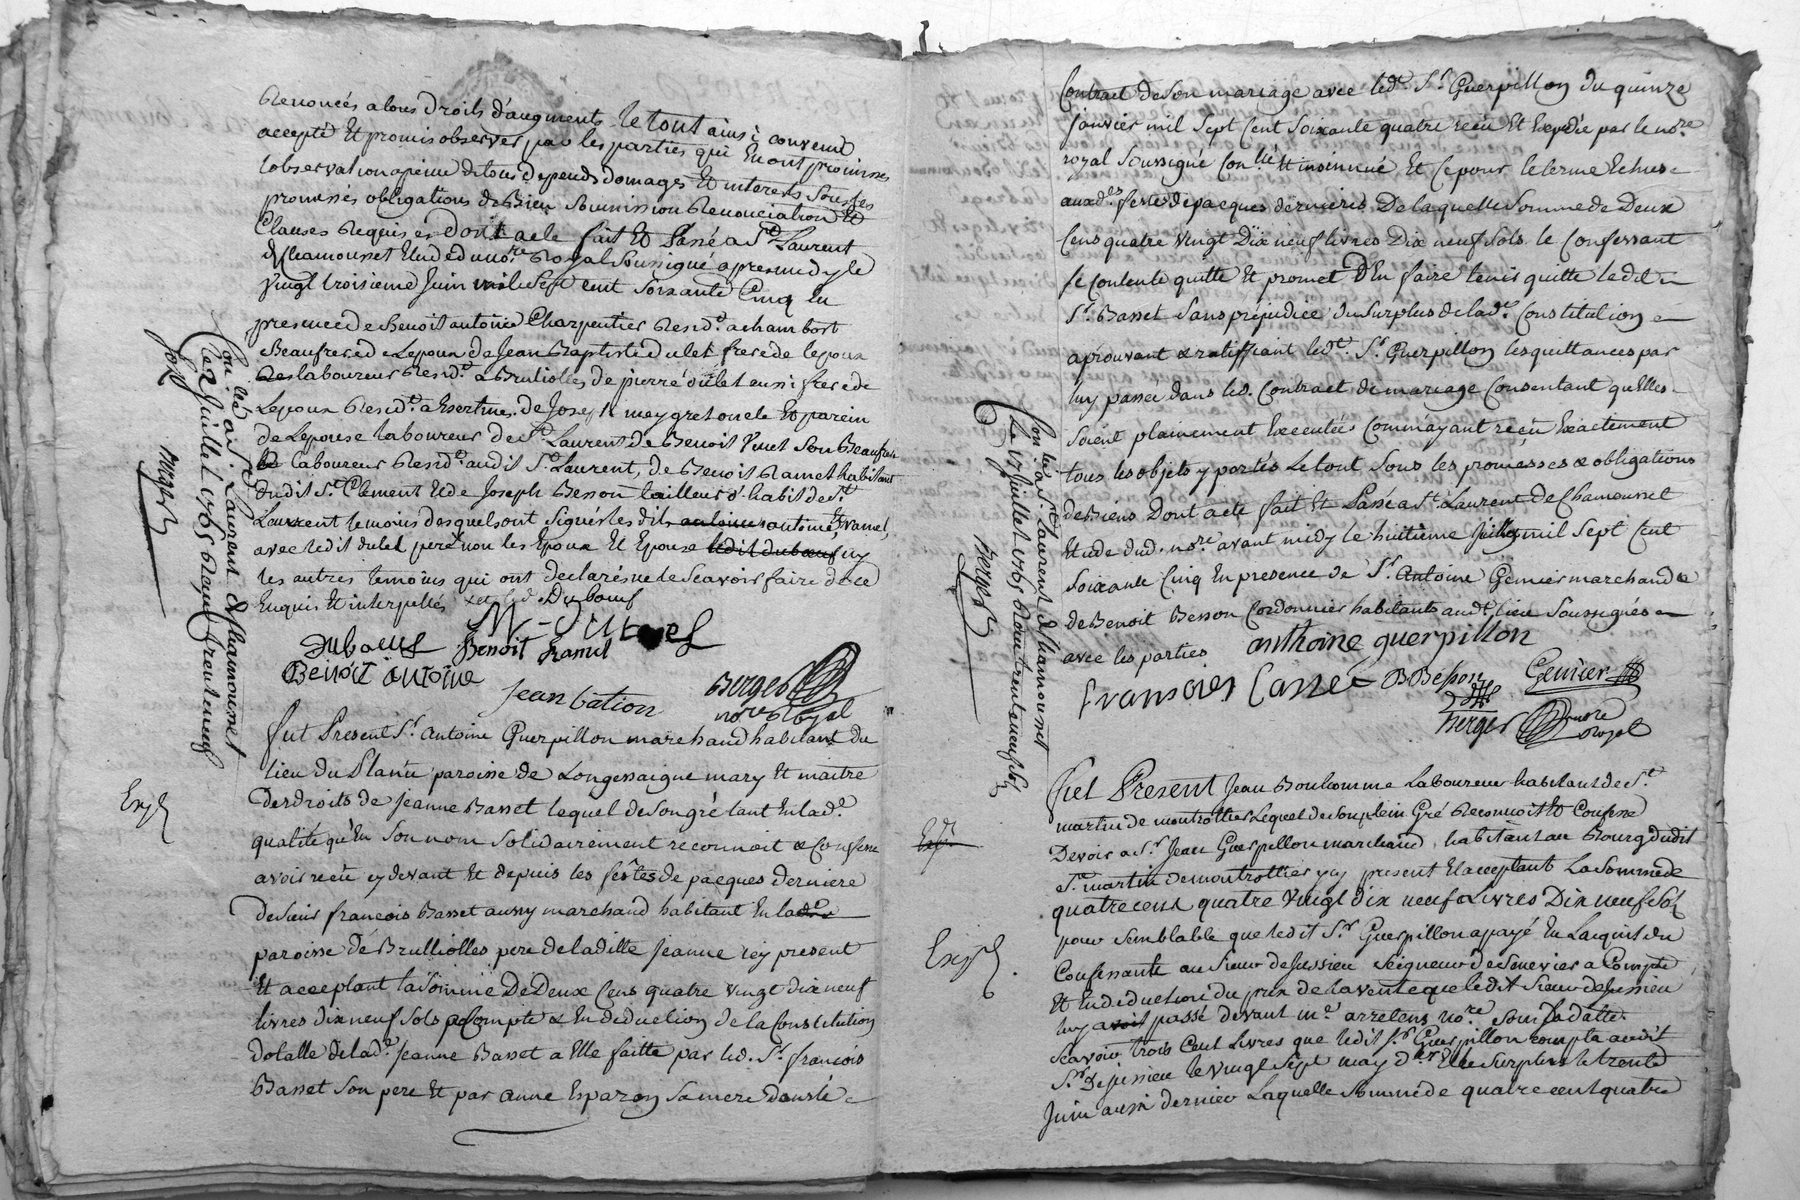 Renoncés a tous droits d'augments le tout ainsi convenu
accepté Et promis observer par les parties qui En ont promises
lobservation a peine de tous depends domages Et interets sous les
promesses obligations de Bien soumission Renonciation Et
Clauses Requises dont acte fait Et Passé a St Laurent
de Chamousset Etude du nore Royal soussigné apres midy le
vingt troisieme Juin mil sept cent soixante Cinq En
presence de Benoit antoine Charpentier Residt a chambost
Beaufrere de Lepoux de Jean Baptiste dulet frere de lepoux
laboureur Residt a Brulioles de pierre dulet aussi frere de
Lepoux Residt a Essertines de Josephe meygret oncle Et parein
de Lepouse laboureur de St Laurent de Benoit Venet son Beaufrere
laboureur Residt audit St Laurent, de Benoit Ramel habitant
dudit St Clement Et de Joseph Besson tailleur d'habit de St
Laurent temoins desquels ont signés lesdits antoine Et ramel,
avec ledit dulet pere non les Epoux Et Epouse ledit duboeuf ny
les autres temoins qui ont declarés ne le scavoir faire de ce
Enquis Et interpellés et led. Duboeuf
Duboeuf Benoit Ramel
Benoit antoine
Jean bation Berger
nore Royal
Con lé a St Laurent de chamousset
le 2 Juillet 1765 Reçu trente neuf
sols
Berger
Exp
fut Present Sr. Antoine Guerpillon marchand habitant du
lieu du Planu paroisse de Longessaigne mary Et maitre
des droits de Jeanne Basset lequel de son gré tant En lade
qualité qu'En son nom solidairement reconnoit & Confesse
avoir reçu cy devant Et depuis les fêstes de pacques derniere
de sieur francois Basset aussy marchand habitant En lade
paroisse de Brulliolles pere de laditte Jeanne icy present
Et acceptant la somme De Deux Cens quatre vingt dix neuf
livres dix neuf sols a Compte & En deduction de la Constitution
dotalle de lade Jeanne Basset a Elle faitte par led. Sr. francois
Basset son pere Et par anne Esparon sa mere dans le
Contract de son mariage avec ledt Sr Guerpillon du quinze
janvier mil sept Cent soixante quatre reçu Et Expedié par le nore
royal soussigné Con lé Et insinué Et Ce pour le terme Echus
auxd. festes de pacques dernieres De laquelle somme de Deux
Cens quatre vingt Dix neuf livres Dix neuf sols le Confessant
se Contente quitte Et promet D'En faire tenir quitte ledit
Sr. Basset sans prejudice du surplus de lade Constitution
aprouvant & ratiffiant ledt Sr. Guerpillon les quittances par
luy passée dans led. Contract de mariage Consentant qu'Elles
soient plainement Executées Comm'ayant reçu Exactement
tous les objets y portés Le tout sous les promesses & obligations
de Biens Dont acte fait Et Passé a St. Laurent de Chamousset
Etude dud. nore avant midy le huitieme Juillet mil sept Cent
soixante Cinq En presence de Sr. Antoine Genier marchand &
de Benoit Besson Cordonnier habitants audt lieu soussignés
avec les parties anthoine guerpillon
francoies Basset BBesson Genier
Berger nore
royal
Con lé a St Laurent de chamousset
Le 17 Juillet 1765 Reçu trente neuf sols
Berger
Exp
fut Present Jean Bonhomme Laboureur habitant de St.
martin de montrottier Lequel de son plein Gré Reconnoit Et Confesse
Devoir a Sr. Jean Guerpillon marchand habitant au Bourg dudit
St. martin de montrottier icy present Et acceptant La Somme de
quatre cent quatre vingt dix neuf Livres Dix neuf sols
pour semblable que ledit Sr Guerpillon a payé En Lacquit du
Confessant au sieur de Jussieu seigneur de Senevier a Compte
Et En deduction du prix de la vente que ledit Sieur de Jussieu
luy avoit passé devant me arrelens nore sous sa datte
scavoir trois Cent Livres que ledit Sr Guerpillon compta audit
Sr. de jussieu le vingt sept may der Et le surplus le trente
Juin aussi dernier Laquelle somme de quatre cent quatre
Exp